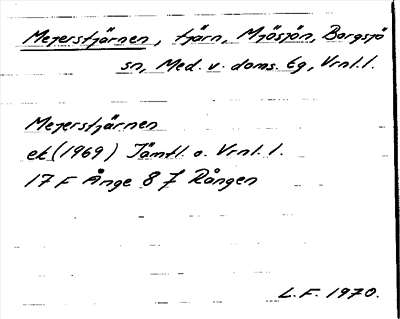 Mejerstjärnen, tjärn, Mjösjön, Borgsjö
sn, Med. v. doms. Eg, Vrnl. l.
Mejerstjärnen
ek (1969) Jämtl. o. Vrnl. l.
17 F Ånge 8 f Rången
L.F. 1970.